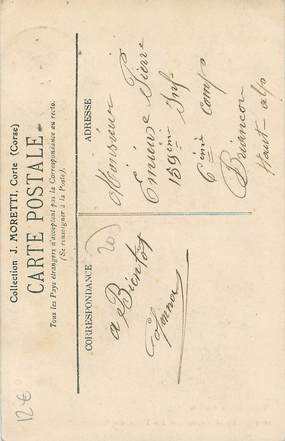 Collection J. MORETTI, Corte (Corse)
CARTE POSTALE
Tous les Pays étrangers n'acceptent pas la Correspondance au recto.
(Se renseigner à la Poste).
CORRESPONDANCE
ADRESSE
20
a Bientôt
Monsieur
Pierre
159ème Inf
6ème Comp
Briançon
Haut-alp
12€